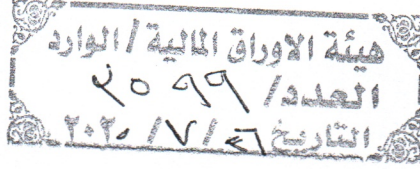 هيئة الاوراق المالية / الوارد
العدد / ٢٥٩٩
التاريخ ٢٦ / ٧ / ٢٠٢٠